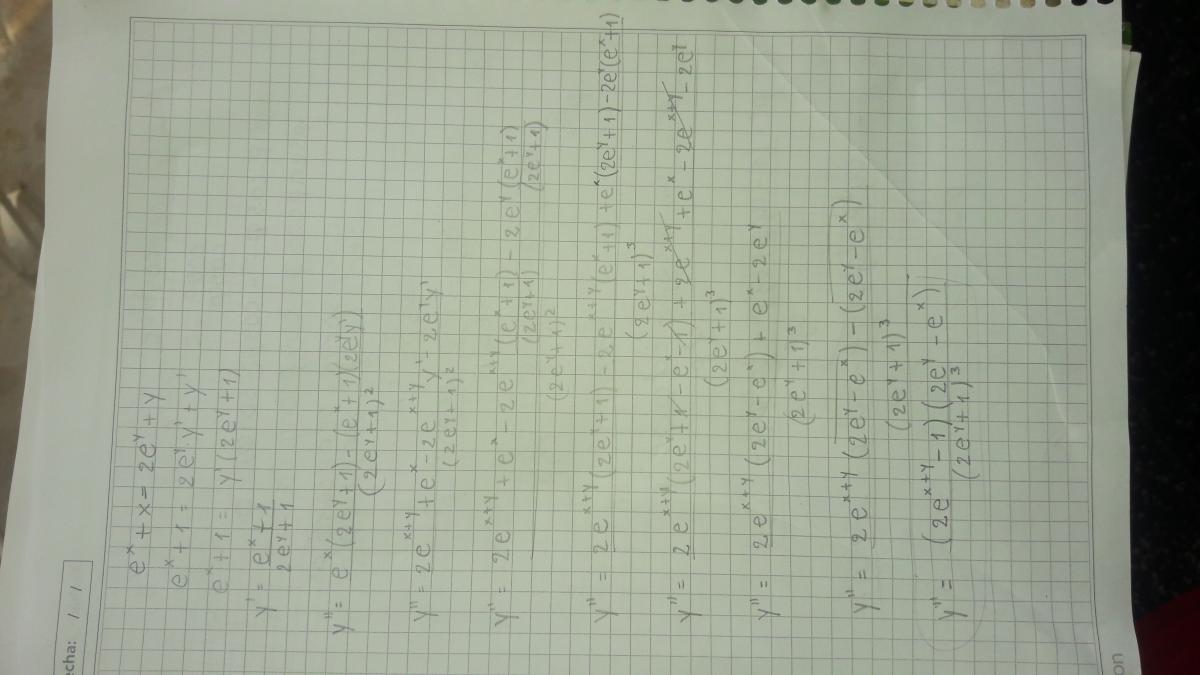 echa: / /
e^x + x = 2e^y + y
e^x + 1 = 2e^y · y' + y'
e^x + 1 = y'(2e^y + 1)
y' = (e^x + 1)/(2e^y + 1)
y'' = (e^x(2e^y + 1) - (e^x + 1)(2e^y y'))/(2e^y + 1)^2
y'' = (2e^{x+y} + e^x - 2e^{x+y} y' - 2e^y y')/(2e^y + 1)^2
y'' = (2e^{x+y} + e^x - 2e^{x+y} (e^x + 1)/(2e^y + 1) - 2e^y (e^x + 1)/(2e^y + 1))/(2e^y + 1)^2
y'' = (2e^{x+y}(2e^y + 1) - 2e^{x+y}(e^x + 1) + e^x(2e^y + 1) - 2e^y(e^x + 1))/(2e^y + 1)^3
y'' = (2e^{x+y}(2e^y + 1 - e^x - 1) + 2e^{x+y} + e^x - 2e^{x+y} - 2e^y)/(2e^y + 1)^3
y'' = (2e^{x+y}(2e^y - e^x) + e^x - 2e^y)/(2e^y + 1)^3
y'' = (2e^{x+y}(2e^y - e^x) - (2e^y - e^x))/(2e^y + 1)^3
y'' = ((2e^{x+y} - 1)(2e^y - e^x))/(2e^y + 1)^3
on